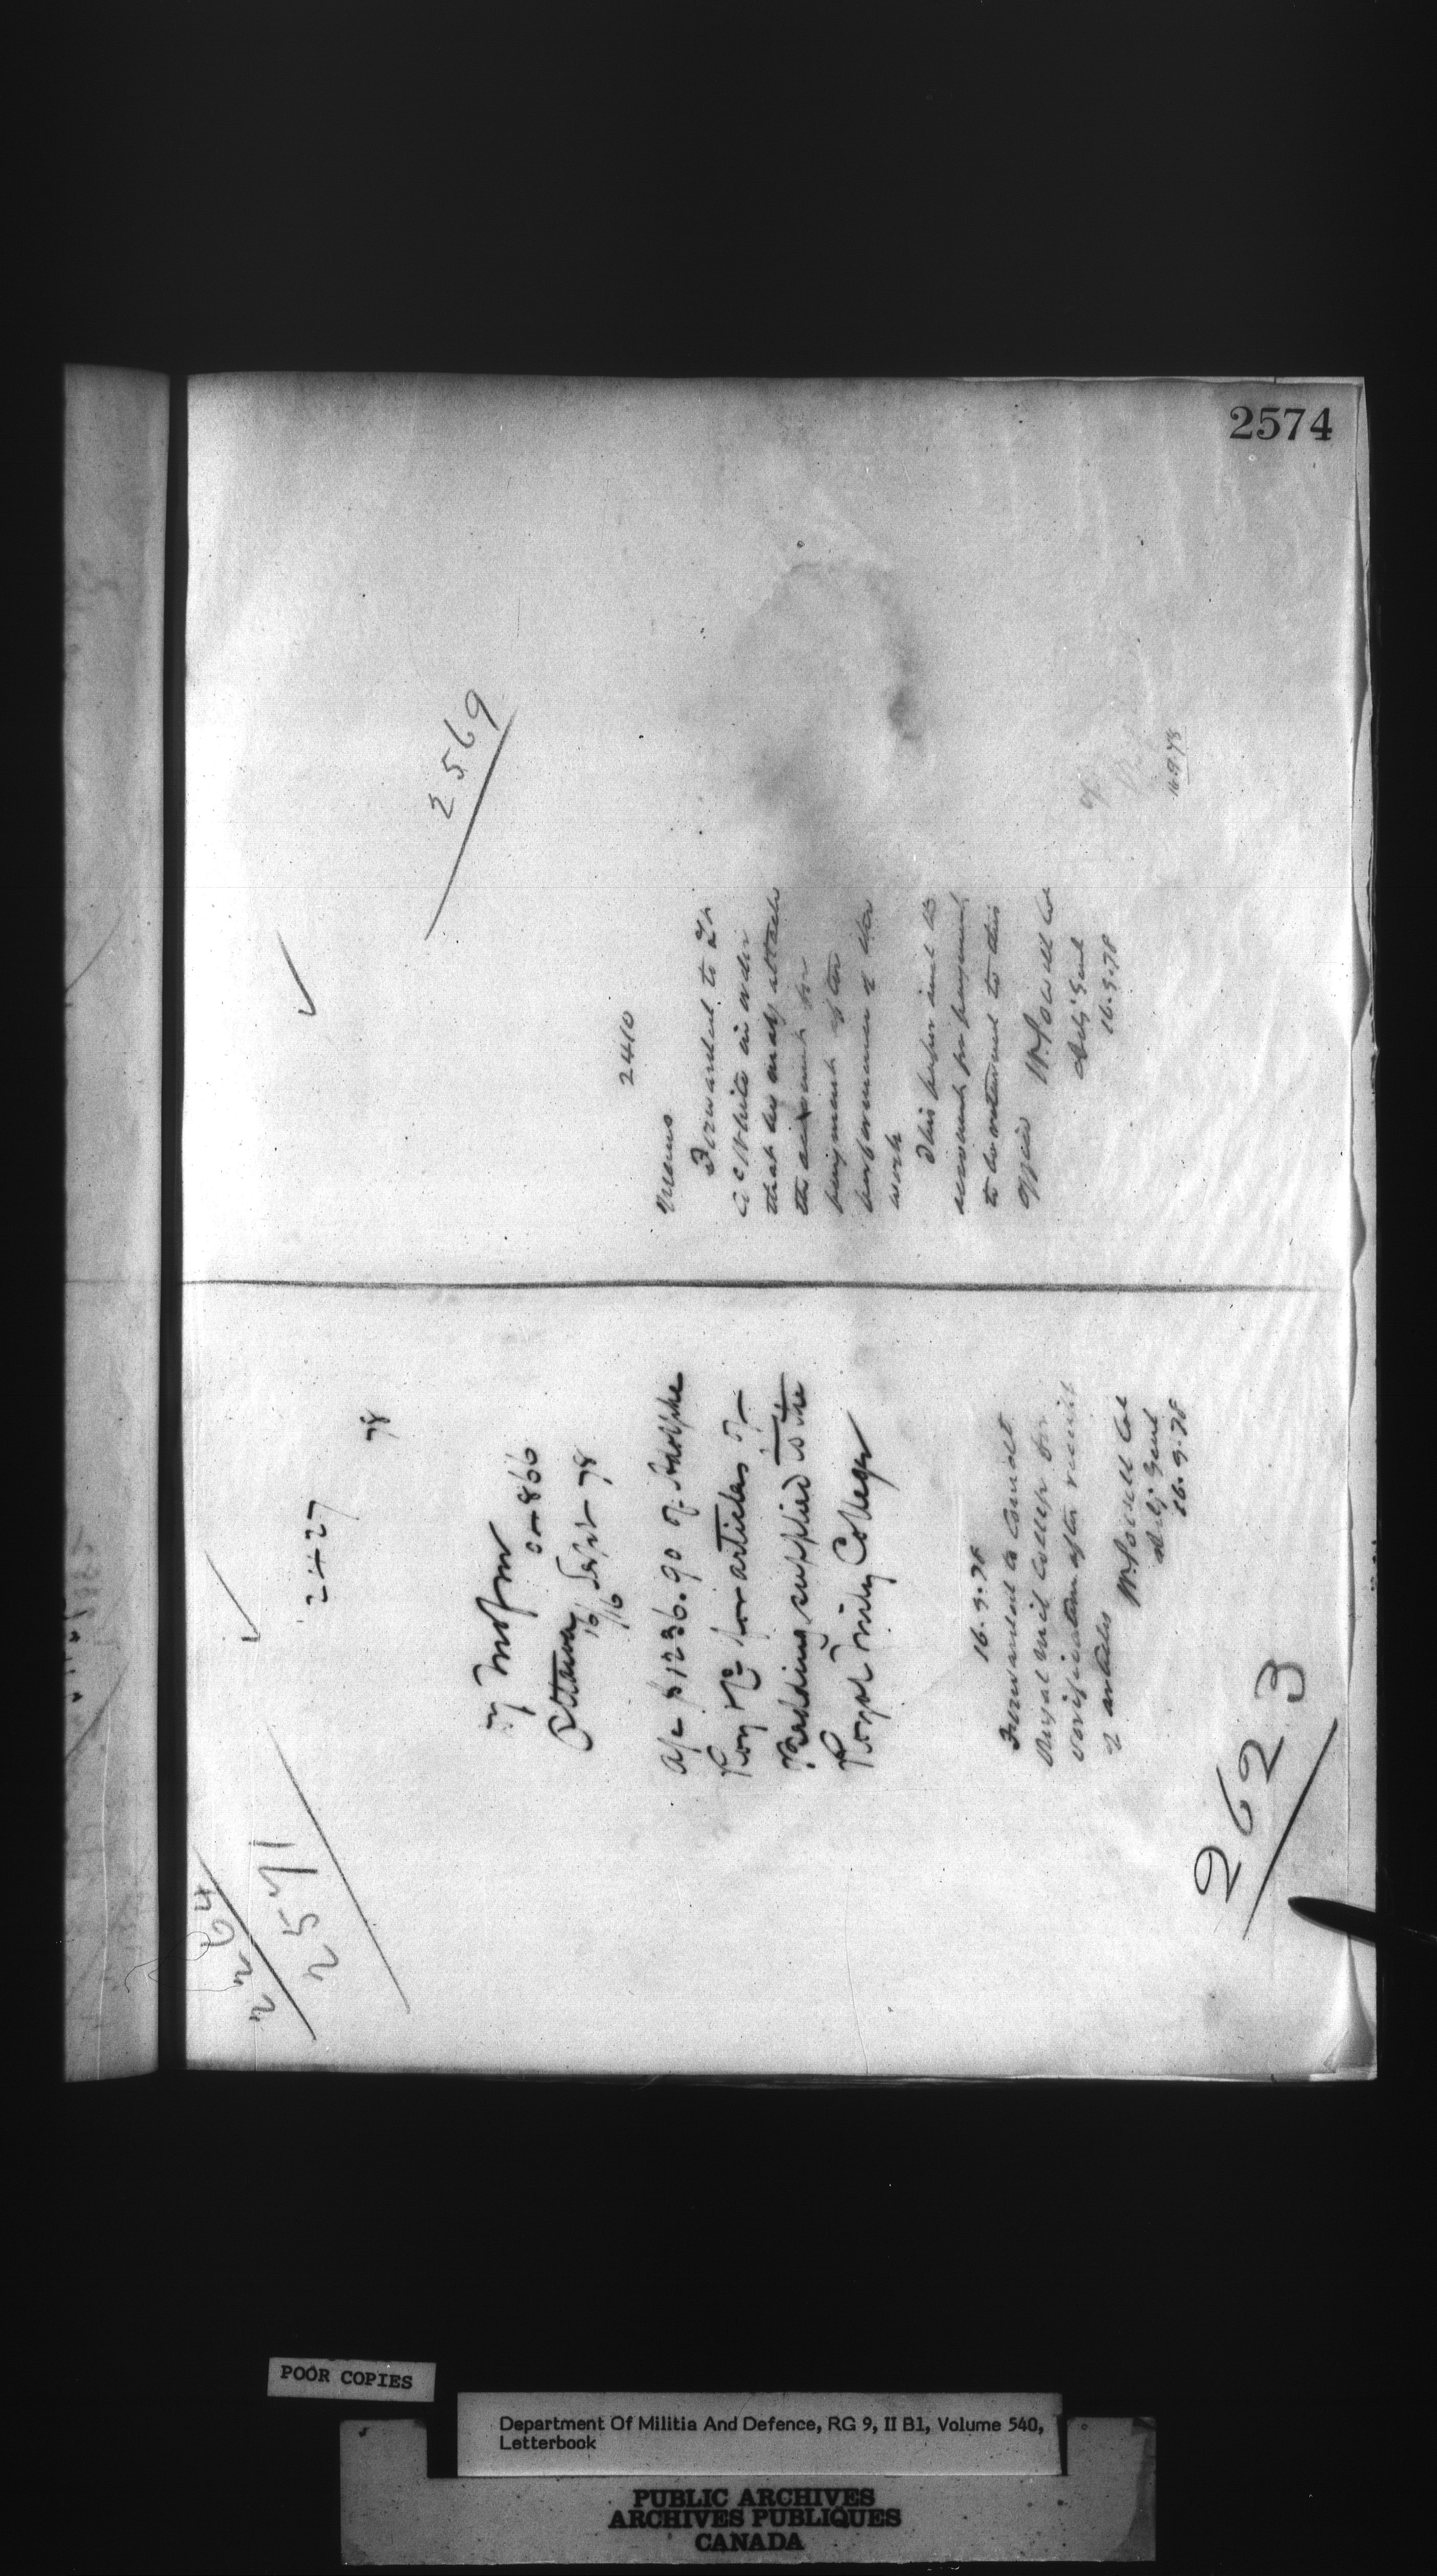 2574
2264
2571
2427
78
Ottawa
16 Sept 78
a/c $1236.90 of Adolphe
Roy & Co for articles of
Bedding supplied to the
Royal Mily College
16.9.78
Forwarded to Comdt
Royal Mil College for
verification after receipt
of articles
W. Powell Col
Adj Genl
16.9.78
2623
2569
2410
Memo
Forwarded to Lt
Col White in order
that he may attach
the account for
payment after
performance of the
work
This paper and the
account for payment
to be returned to this
office
W. Powell Col
Adj Genl
16.9.78
16.9.78
POOR COPIES
Department Of Militia And Defence, RG 9, II B1, Volume 540,
Letterbook
PUBLIC ARCHIVES
ARCHIVES PUBLIQUES
CANADA